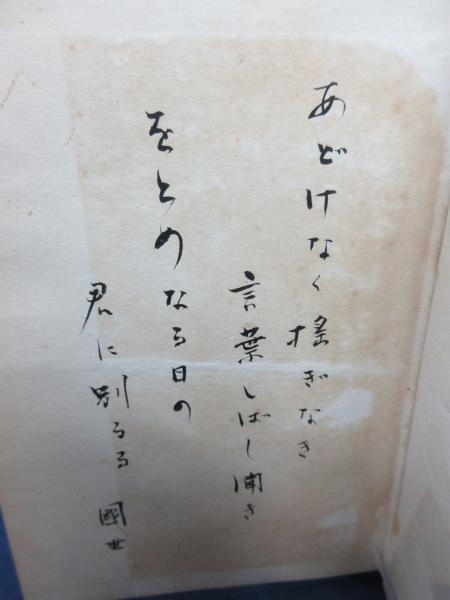 あどけなく揺ぎなき
言葉しばし聞き
をとめなる日の
君に別るる 國世